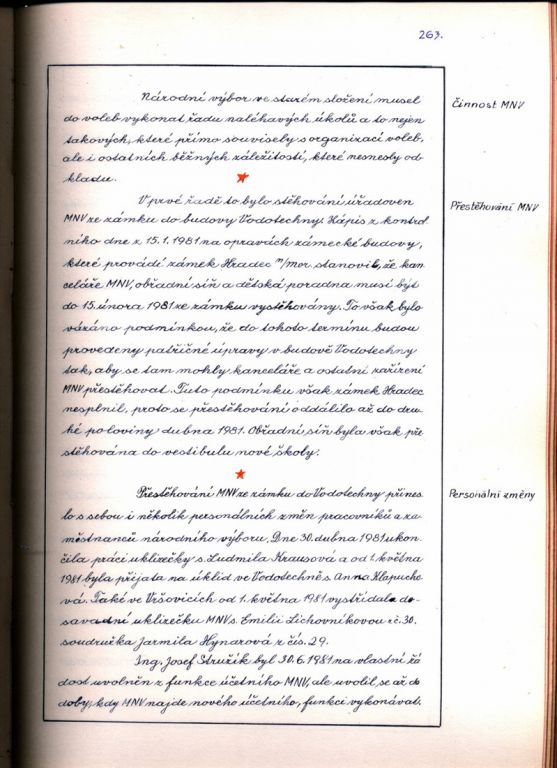 263.
Národní výbor ve starém složení musel
do voleb vykonat řadu naléhavých úkolů a to nejen
takových, které přímo souvisely s organizací voleb,
ale i ostatních běžných záležitostí, které nesnesly od-
kladu.
Činnost MNV
V prvé řadě to bylo stěhování úřadoven
MNV ze zámku do budovy Vodotechny! Zápis z kontrol
ního dne z 15.1.1981 na opravách zámecké budovy,
které provádí zámek Hradec n/mor. stanovil, že kan-
celáře MNV, obřadní síň a dětská poradna musí být
do 15. února 1981 ze zámku vystěhovány. To však bylo
vázáno podmínkou, že do tohoto termínu budou
provedeny patřičné úpravy v budově Vodotechny
tak, aby se tam mohly kanceláře a ostatní zařízení
MNV přestěhovat. Tuto podmínku však zámek Hradec
nesplnil, proto se přestěhování oddálilo až do dru-
hé poloviny dubna 1981. Obřadní síň byla však pře
stěhována do vestibulu nové školy.
Přestěhování MNV
Přestěhování MNV ze zámku do Vodotechny přines
lo s sebou i několik personálních změn pracovníků a za
městnanců národního výboru. Dne 30. dubna 1981 ukon-
čila práci uklizečky s. Ludmila Krausová a od 1. května
1981 byla přijata na úklid ve Vodotechně s. Anna Klapucho-
vá. Také ve Vršovicích od 1. května 1981 vystřídala do-
savadní uklizečku MNV s. Emilii Lichovníkovou z č. 30.
soudružka Jarmila Hynarová z čís. 29.
Ing. Josef Stružík byl 30.6.1981 na vlastní žá
dost uvolněn z funkce účetního MNV, ale uvolil se až do
doby, kdy MNV najde nového účetního, funkci vykonávat.
Personální změny